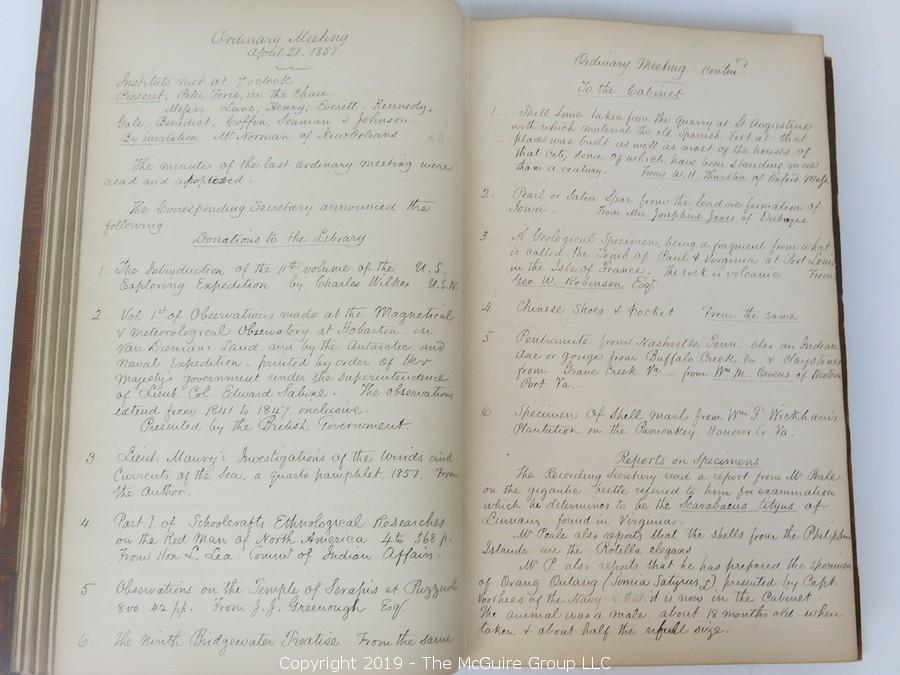 Ordinary Meeting
April 21. 1851
Institute met at 7 oclock
Present, Peter Force, in the Chair,
Messrs Lane, Henry, Everett, Kennedy,
Gale, Benedict, Coffin, Seaman & Johnson.
By invitation Mr Norman of New Orleans
The minutes of the last ordinary meeting were
read and adopted.
The Corresponding Secretary announced the
following
Donations to the Library
1. The Introduction of the 11th volume of the U.S.
Exploring Expedition by Charles Wilkes U.S.N.
2. Vol 1st of Observations made at the Magnetical
& Meteorological Observatory at Hobarton in
Van Diemans Land and by the Antarctic and
Naval Expedition - printed by order of Her
Majesty's government under the superintendence
of Lieut. Col. Edward Sabine. The observations
extend from 1841 to 1847 inclusive.
Presented by the British Government.
3 Lieut. Maury's Investigations of the Winds and
Currents of the Sea, a quarto pamphlet. 1851. From
the Author.
4 Part I of Schoolcrafts Ethnological Researches
on the Red Man of North America 4to 568 p.
From Hon L. Lea. Commr of Indian Affairs.
5 Observations on the Temple of Serapis at Puzzuoli
8vo 42 pp. From J. J. Greenough Esq
6. The Ninth Bridgewater Treatise From the same
Ordinary Meeting Contind.
To the Cabinet
1. Shell Lime taken from the quarry at St Augustine
with which material the old Spanish Fort at that
place was built as well as most of the houses of
that City, some of which have been standing more
than a century. From W. H. Thurston of Oxford Mass
2. Pearl or Satin spar from the lead ore formation of
Iowa. From Mrs Josephine Jones of Dubuque
3 A Geological Specimen, being a fragment from what
is called the Tomb of Paul & Virginia at Port Louis
in the Isle of France. The rock is volcanic From
Geo W. Robinson Esqr.
4 Chinese Shoes & pocket From the same
5 Pentramite from Nashville Tenn. also an Indian
Axe or gouge from Buffalo Creek Va & Claystones
from Grave Creek Va. - from Wm M. Owens of Western
Port Va.
6 Specimen Of Shell marl from Wm F. Wickham's
Plantation on the Pamonkey Hanover Co Va.
Reports on Specimens
The Recording Secretary read a report from Mr Peale
on the gigantic beetle referred to him for examination
which he determines to be the Scarabaeus tityus of
Linnaeus found in Virginia.
Mr Peale also reports that the shells from the Philippine
Islands are the Rotella elegans
Mr P. also reports that he has prepared the specimen
of Orang Outang (Simia Satyrus, L) presented by Capt.
Voorhees of the Navy & that it is now in the Cabinet.
The animal was a male, about 18 months old when
taken & about half the full size.
Copyright 2019 - The McGuire Group LLC